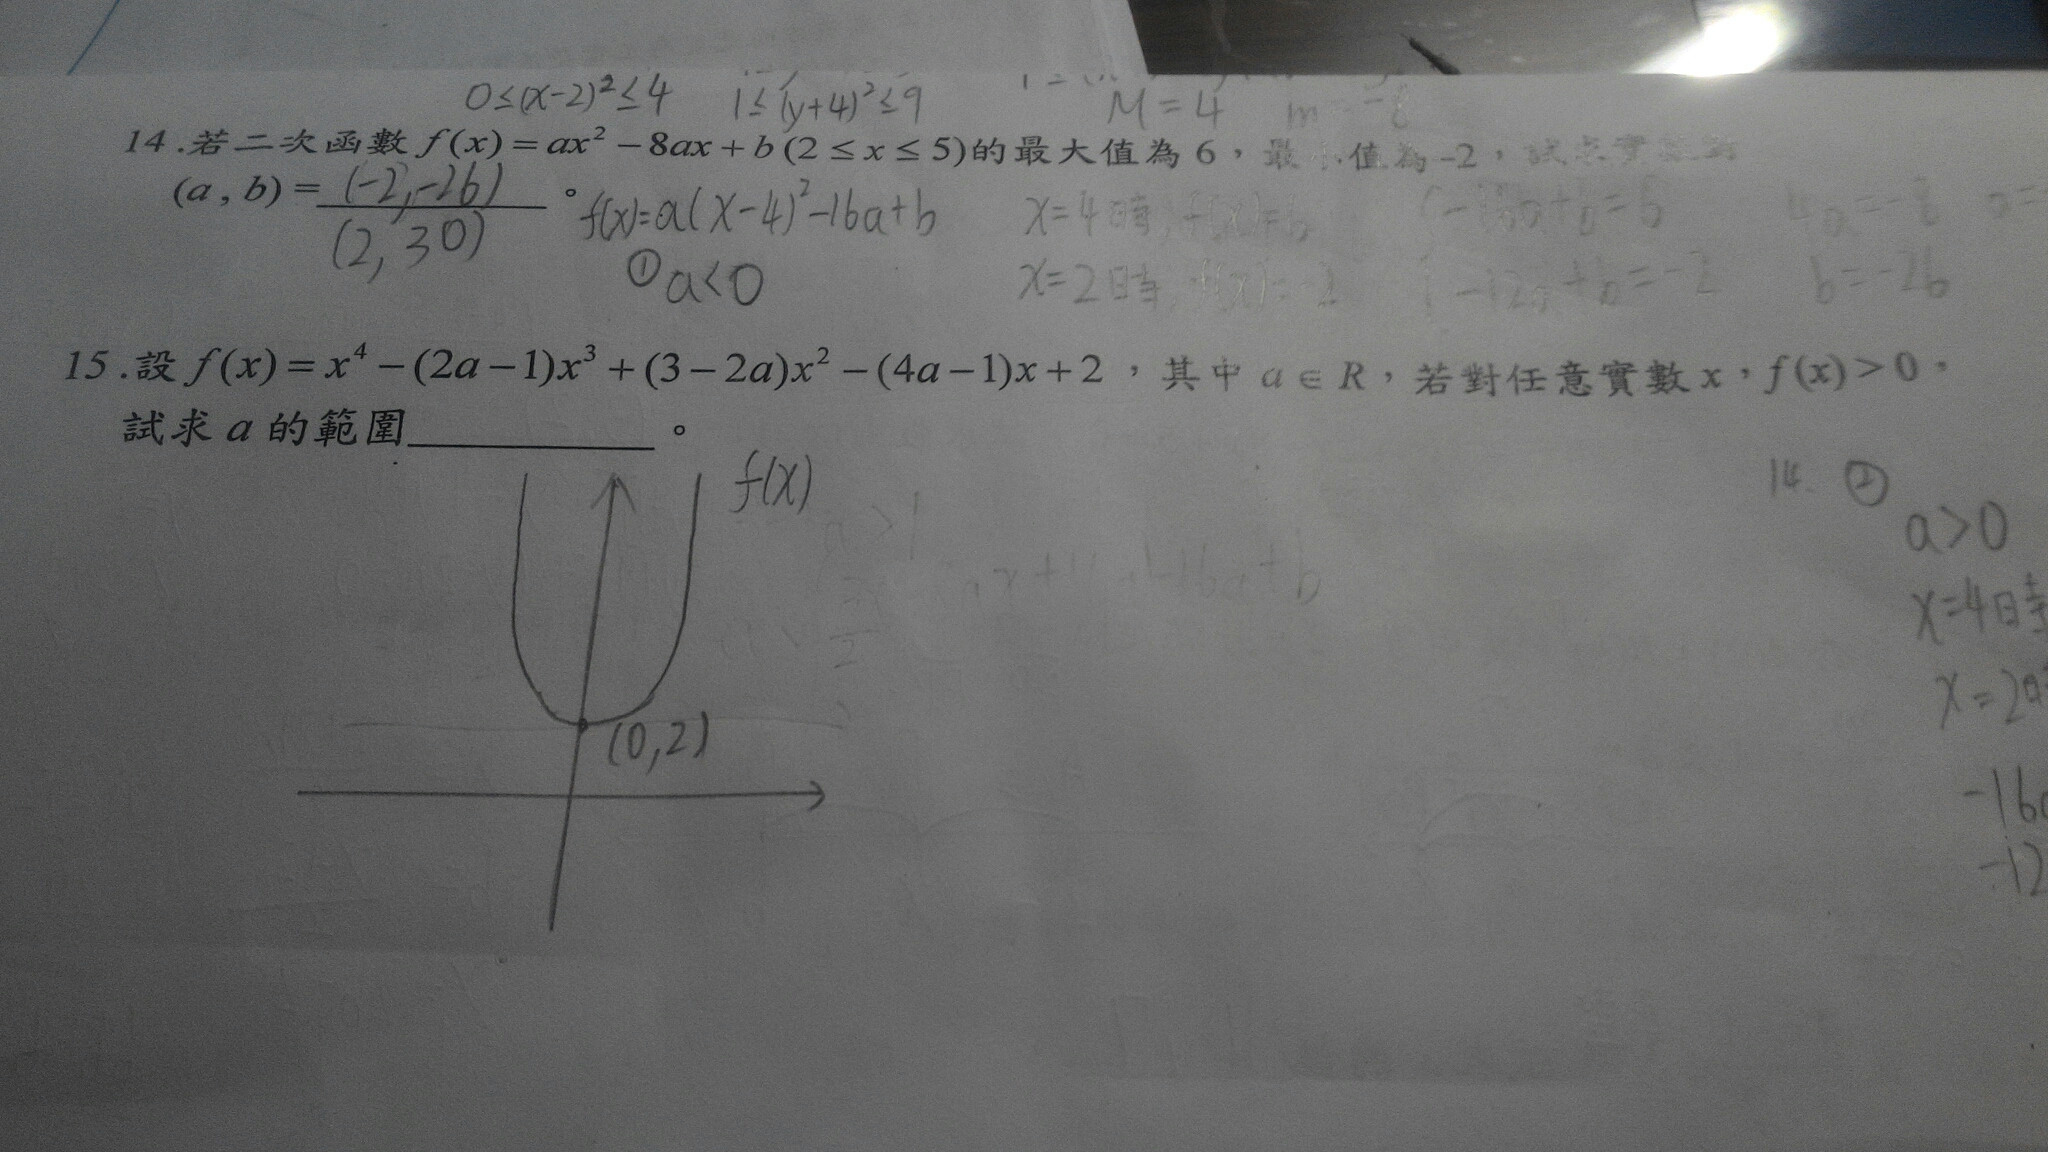 0≤(x-2)²≤4 1≤(y+4)²≤9 M=4
14.若二次函數 f(x)=ax²-8ax+b(2≤x≤5)的最大值為6，最小值為-2，試求實數對
(a,b)=(-2,-26)。f(x)=a(x-4)²-16a+b x=4時,f(x)=6 -16a+b=6 4a=-8
(2,30) ①a<0 x=2時,f(x)=-2 -12a+b=-2 b=-26
15.設 f(x)=x⁴-(2a-1)x³+(3-2a)x²-(4a-1)x+2，其中 a∈R，若對任意實數 x，f(x)>0，
試求 a 的範圍 。
f(x)
(0,2)
14. ②
a>0
x=4時
x=2時
-16a
-12